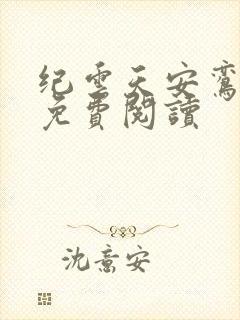 纪雲天安鸾
免費閱讀
沈意安